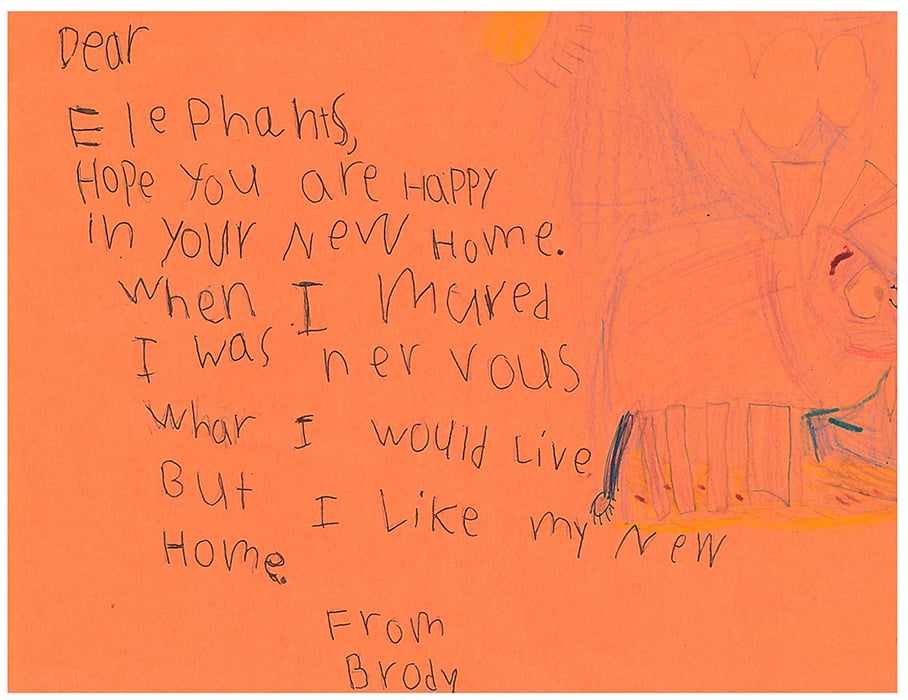 Dear
Elephants,
Hope you are Happy
in your New Home.
When I Mured
I was nervous
Whar I would Live
But I Like my New
Home.
From
Brody